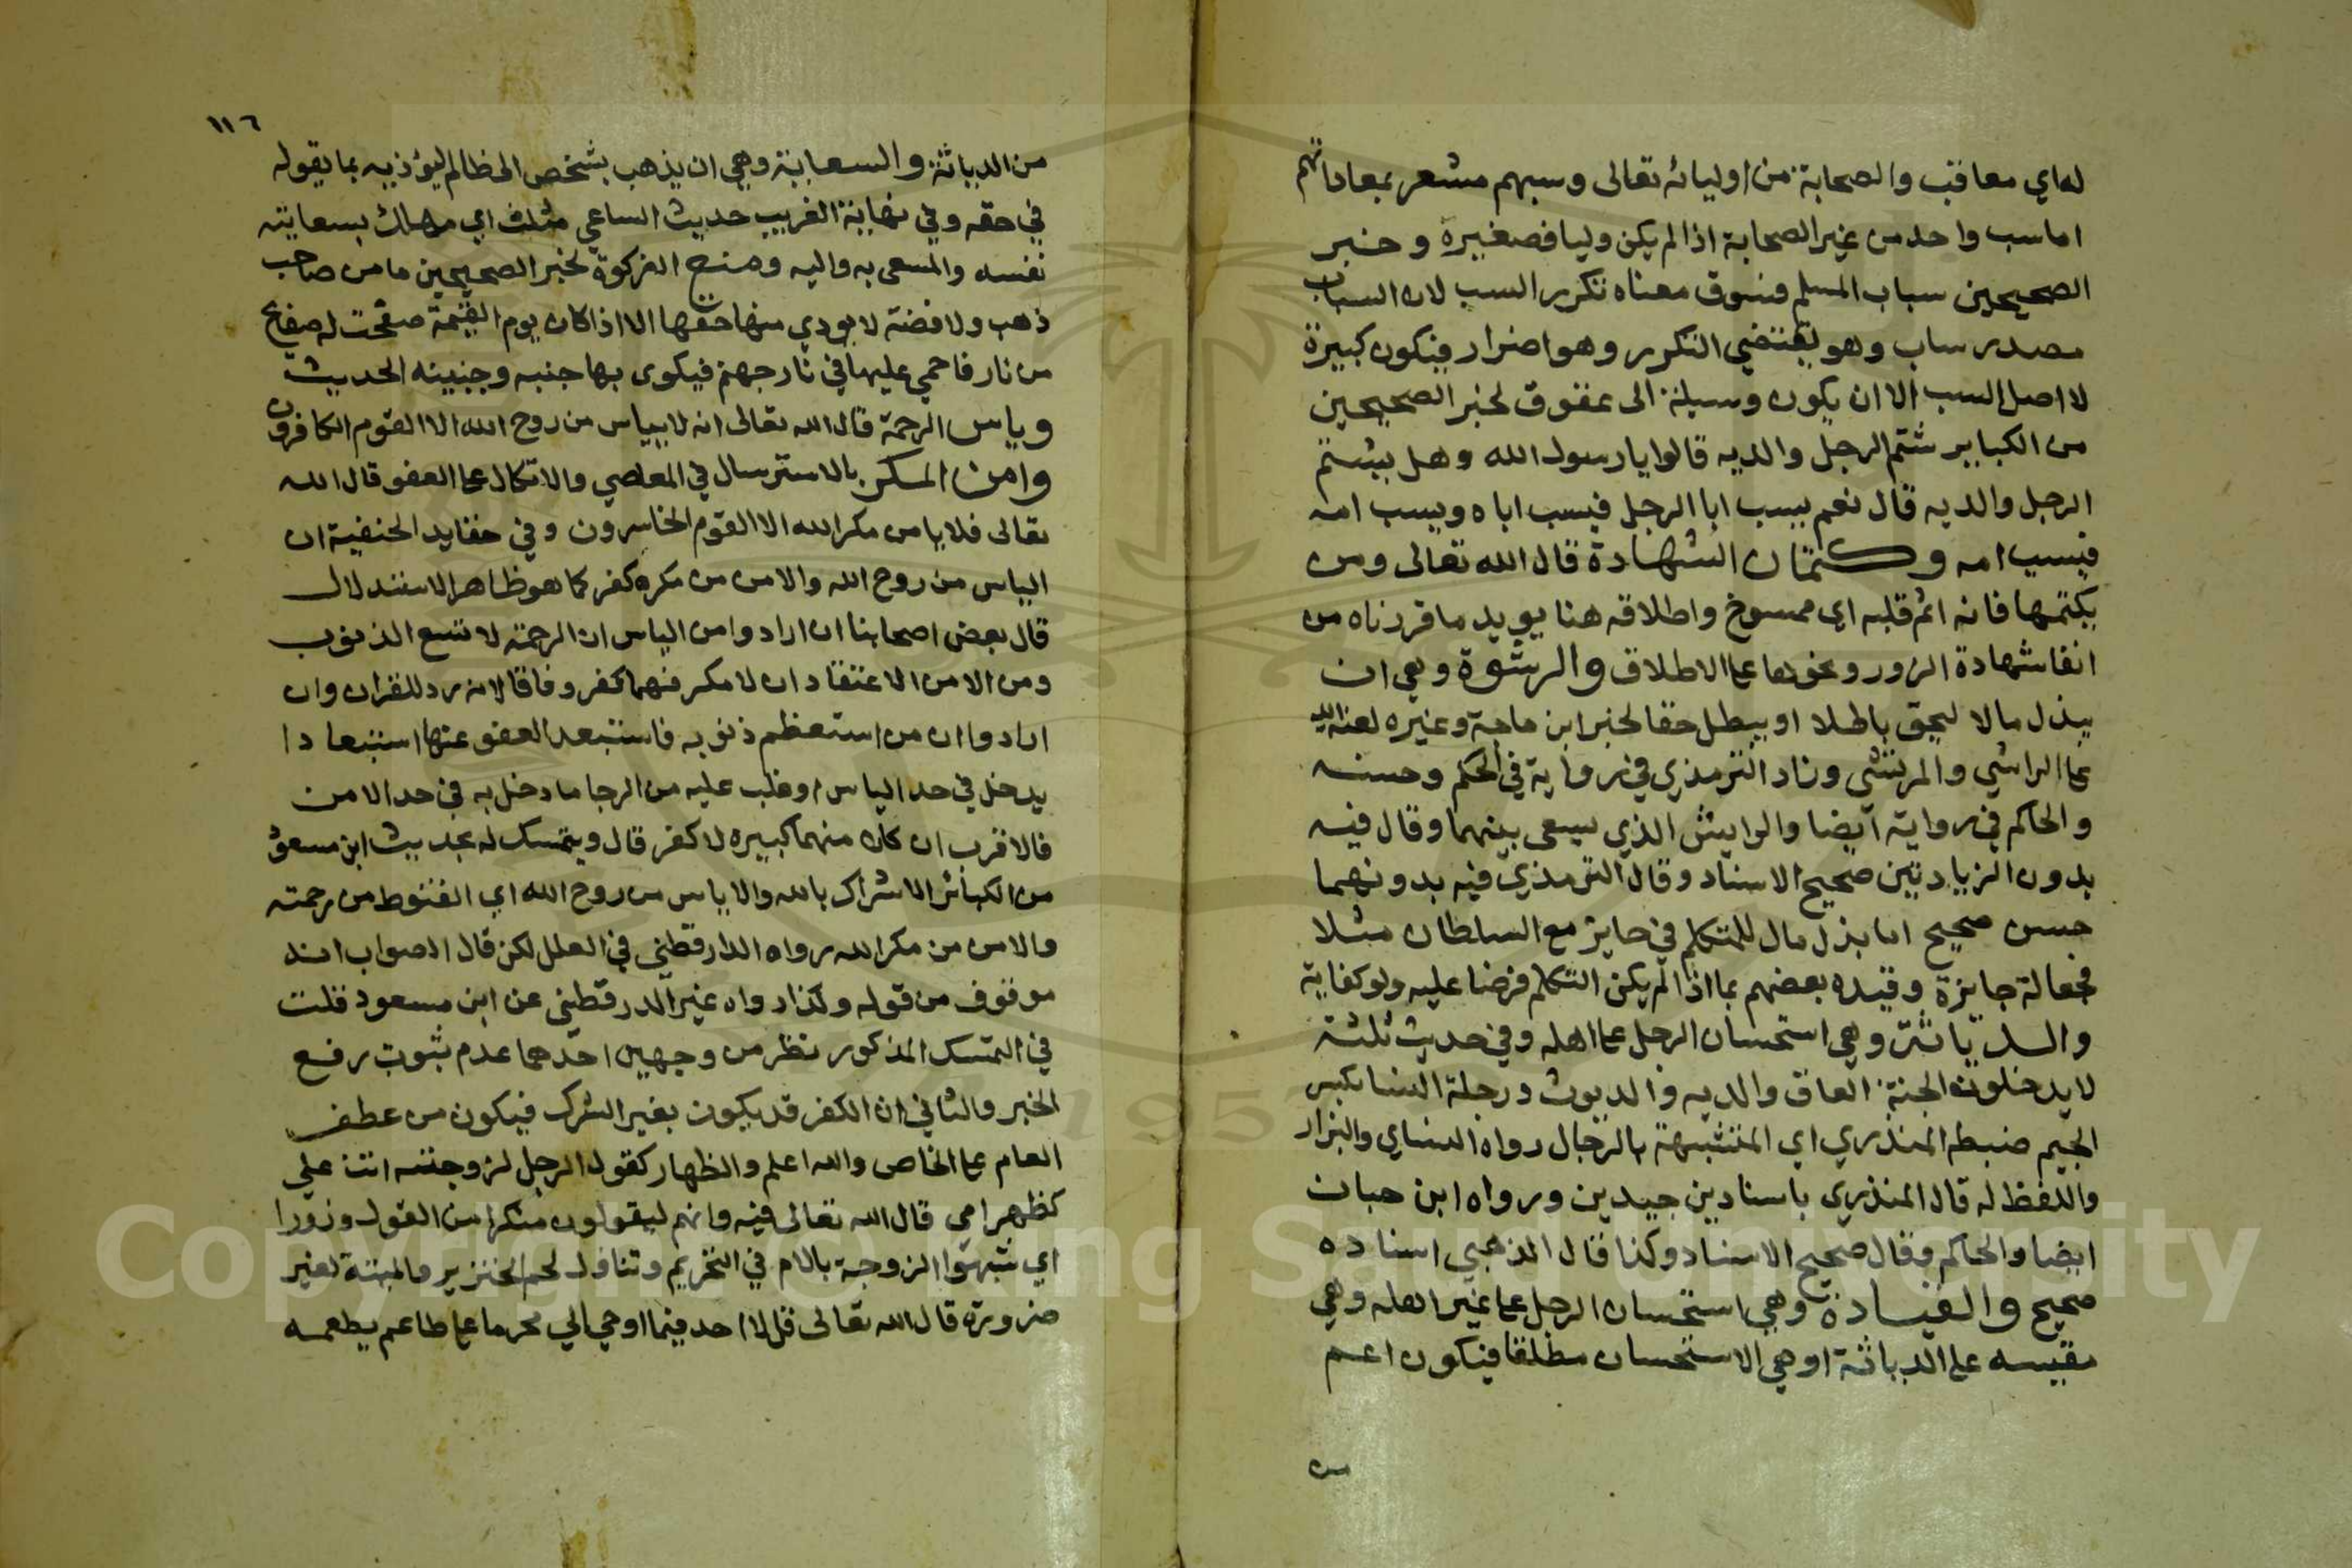 له اي معاقب والصحابة من اوليائه تعالى وسبهم مشعر بمعاداتهم
اما سب واحد من غير الصحابة اذا لم يكن وليا فصغيرة وخبر
الصحيحين سباب المسلم فسوق معناه تكرر السب لان السباب
مصدر ساب وهو يقتضي التكرر وهو اضرار فيكون كبيرة
لا اصل السب الا ان يكون وسيلة الى عقوق لخبر الصحيحين
من الكباير شتم الرجل والديه قالوا يا رسول الله وهل يشتم
الرجل والديه قال نعم يسب ابا الرجل فيسب اباه ويسب امه
فيسب امه وكتمان الشهادة قال الله تعالى ومن
يكتمها فانه اثم قلبه اي ممسوخ واطلاقه هنا يويد ما قررناه من
انفا شهادة الزور ونحوها على الاطلاق والرشوة وهي ان
يبذل مالا ليحق باطلا او يبطل حقا لخبر ابن ماجة وغيره لعنة الله
على الراشي والمرتشي وزاد الترمذي في رواية في الحكم وحسنه
والحاكم في رواية ايضا والرايش الذي يسعى بينهما وقال فيه
بدون الزيادتين صحيح الاسناد وقال الترمذي فيه بدونهما
حسن صحيح اما بذل مال للمتكلم في جايز مع السلطان مثلا
فجعالة جايزة وقيده بعضهم بما اذا لم يكن التكلم فرضا عليه ولو كفاية
والدياثة وهي استحسان الرجل على اهله وفي حديث ثلثة
لا يدخلون الجنة العاق والديه والديوث ورجلة النسا بكسر
الجيم ضبطه المنذري اي المتشبهة بالرجال رواه النساي والبزار
واللفظ له قال المنذري باسنادين جيدين ورواه ابن حبان
ايضا والحاكم وقال صحيح الاسناد وكذا قال الذهبي اسناده
صحيح والقيادة وهي استحسان الرجل على غير اهله وهي
مقيسه على الدياثة او هي الاستحسان مطلقا فيكون اعم
من
١١٦
من الدياثة والسعاية وهي ان يذهب بشخص الى ظالم ليؤذيه بما يقوله
في حقه وفي نهاية الغريب حديث الساعي مثلث اي مهلك بسعايته
نفسه والمسعى به واليه ومنع الزكوة لخبر الصحيحين ما من صاحب
ذهب ولا فضة لا يودي منها حقها الا اذا كان يوم القيمة صفحت له صفايح
من نار فاحمي عليها في نار جهنم فيكوى بها جنبه وجبينه الحديث
وياس الرحمة قال الله تعالى انه لا ييأس من روح الله الا القوم الكافرون
وامن المكر بالاسترسال في المعاصي والاتكال على العفو قال الله
تعالى فلا يامن مكر الله الا القوم الخاسرون وفي عقايد الحنفية ان
الياس من روح الله والامن من مكره كفر كما هو ظاهر الاستدلال
قال بعض اصحابنا ان ارادوا من الياس ان الرحمة لا تسع الذنوب
ومن الامن الاعتقاد ان لا مكر فهما كفر وفاقا لانه رد للقران وان
ارادوا ان من استعظم ذنوبه فاستبعد العفو عنها استبعادا
يدخل في حد الياس او غلب عليه من الرجا ما دخل به في حد الامن
فالاقرب ان كلا منهما كبيره لا كفر قال ويتمسك له بحديث ابن مسعود
من الكبائر الاشراك بالله والاياس من روح الله اي القنوط من رحمته
والامن من مكر الله رواه الدارقطني في العلل لكن قال الصواب انه
موقوف من قوله وكذا رواه غير الدرقطني عن ابن مسعود قلت
في التمسك المذكور نظر من وجهين احدهما عدم ثبوت رفع
الخبر والثاني ان الكفر قد يكون بغير الشرك فيكون من عطف
العام على الخاص والله اعلم والظهار كقول الرجل لزوجته انت علي
كظهر امي قال الله تعالى فيه وانهم ليقولون منكرا من القول وزورا
اي شبهوا الزوجة بالام في التحريم وتناول لحم الخنزير والميتة لغير
ضرورة قال الله تعالى قل لا اجد فيما اوحي الي محرما على طاعم يطعمه
Copyright © King Saud University
1957